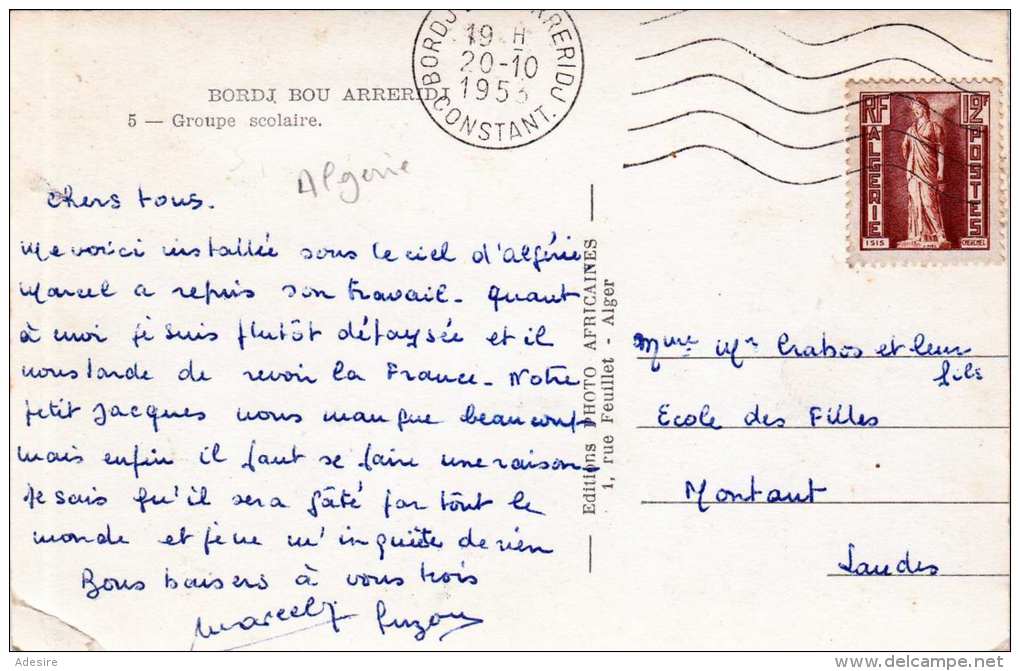 BORDJ BOU ARRERIDJ
5 — Groupe scolaire.
BORDJ ARRERIDJ
19 H
20-10
1953
CONSTANT.
RF
12F
ALGERIE
POSTES
ISIS
CHERCHEL
Algérie
Chers tous.
Me voici installée sous le ciel d'Algérie
Marcel a repris son travail. Quant
à moi je suis plutôt dépaysée et il
nous tarde de revoir la France. Notre
petit Jacques nous manque beaucoup
mais enfin il faut se faire une raison
Je sais qu'il sera gâté par tout le
monde et je ne m'inquiète de rien
Bons baisers à vous trois
Marcel
Editions PHOTO AFRICAINES
1, rue Feuillet - Alger
Mme Mr Crabos et leur
fils
Ecole des Filles
Montaut
Landes
Adesire
www.delcampe.net